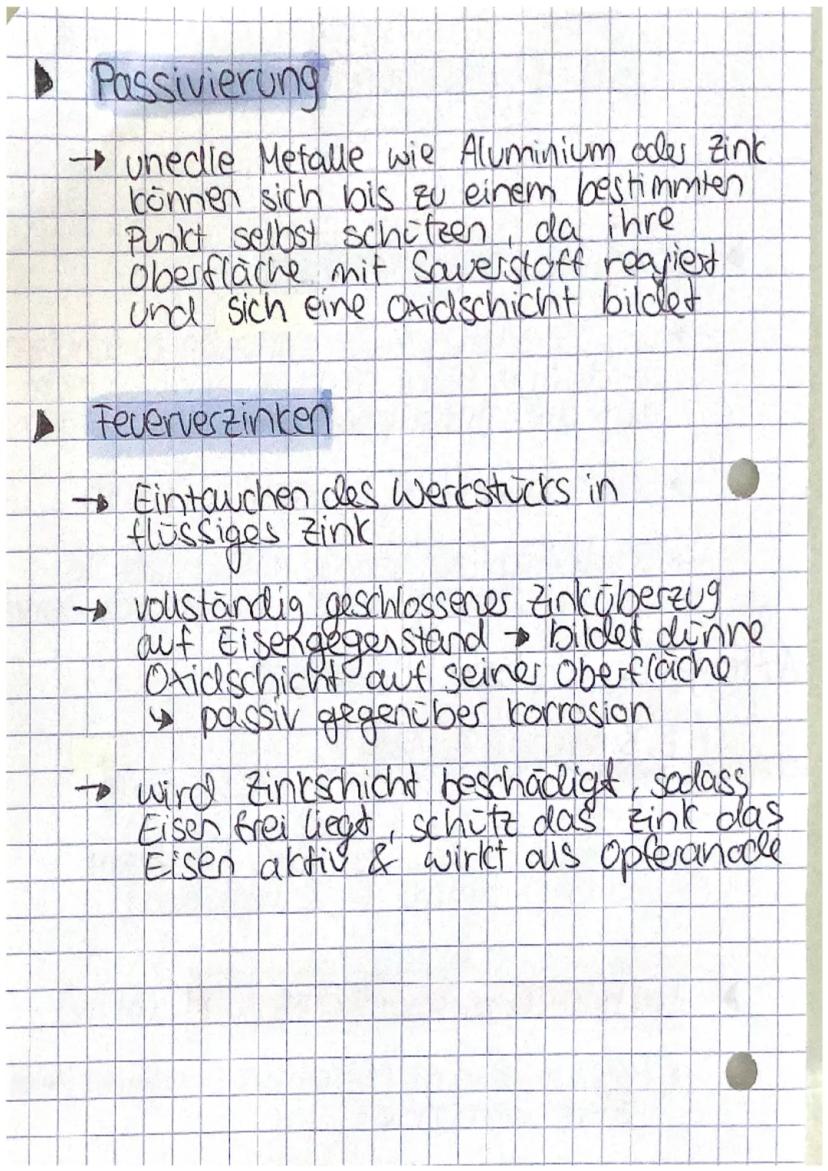 ▶ Passivierung
→ unedle Metalle wie Aluminium oder Zink
können sich bis zu einem bestimmten
Punkt selbst schützen, da ihre
Oberfläche mit Sauerstoff reagiert
und sich eine Oxidschicht bildet
▶ Feuerverzinken
→ Eintauchen des Werkstücks in
flüssiges Zink
→ vollständig geschlossener Zinküberzug
auf Eisengegenstand → bildet dünne
Oxidschicht auf seiner Oberfläche
↳ passiv gegenüber Korrosion
→ wird Zinkschicht beschädigt, sodass
Eisen frei liegt, schütz das Zink das
Eisen aktiv & wirkt als Opferanode